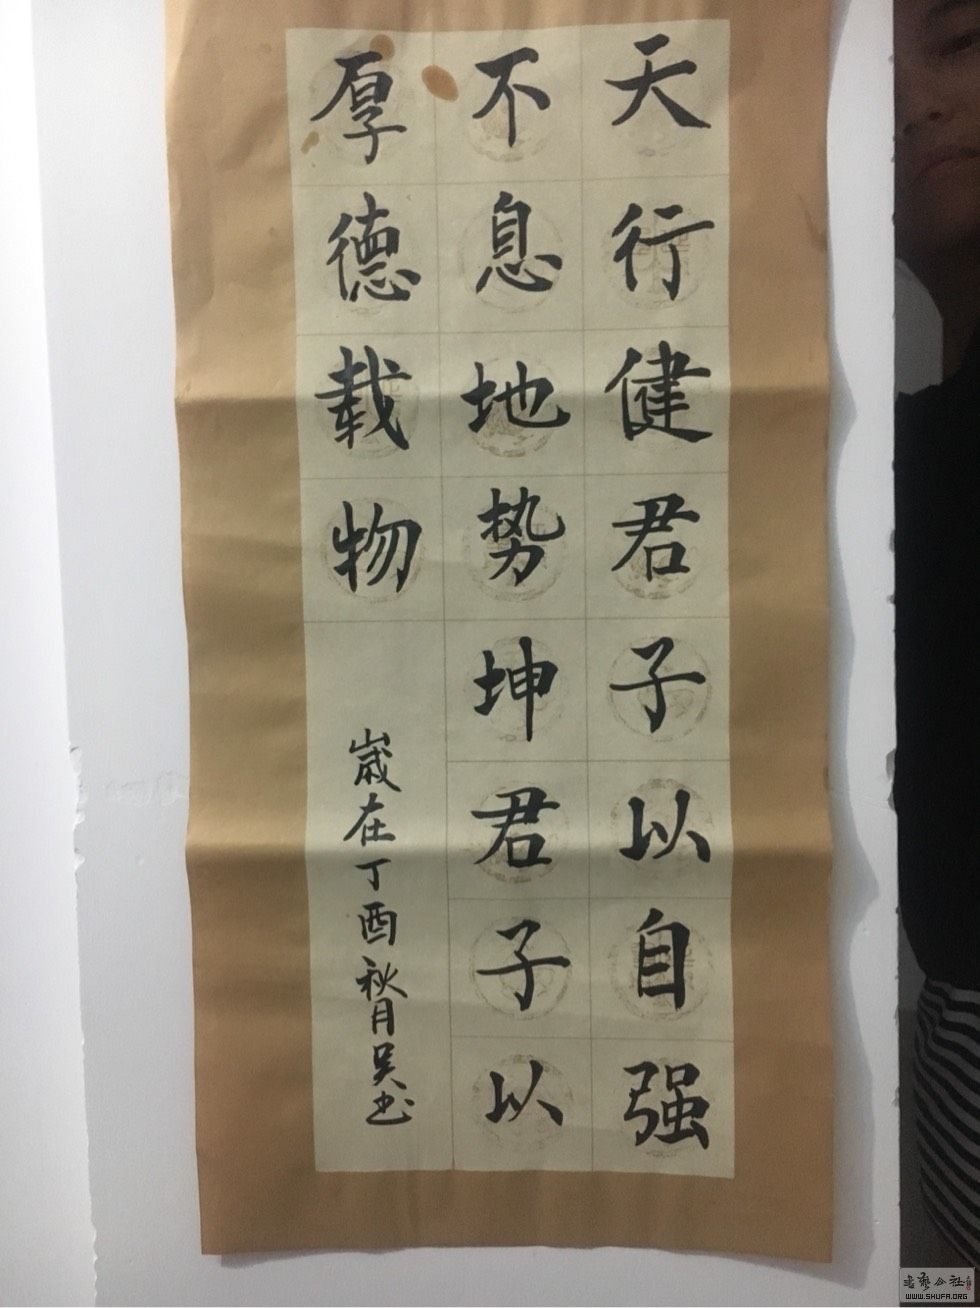 天行健君子以自强
不息地势坤君子以
厚德载物
歳在丁酉秋月吴书
WWW.SHUFA.ORG